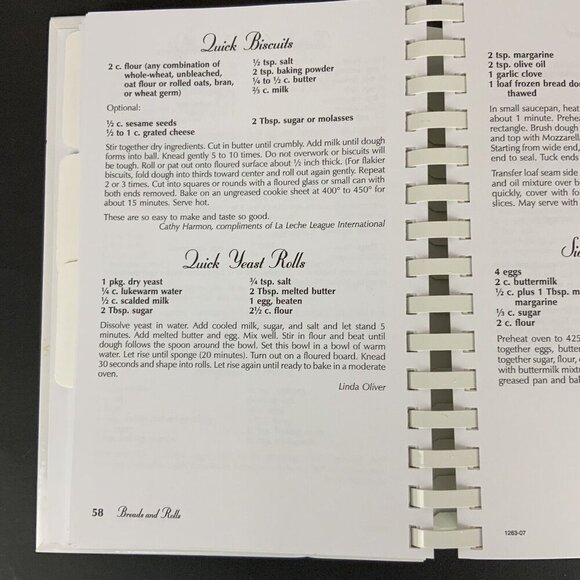 Quick Biscuits
2 c. flour (any combination of
whole-wheat, unbleached,
oat flour or rolled oats, bran,
or wheat germ)
½ tsp. salt
2 tsp. baking powder
¼ to ½ c. butter
⅔ c. milk
Optional:
½ c. sesame seeds
½ to 1 c. grated cheese
2 Tbsp. sugar or molasses
Stir together dry ingredients. Cut in butter until crumbly. Add milk until dough
forms into ball. Knead gently 5 to 10 times. Do not overwork or biscuits will
be tough. Roll or pat out onto floured surface about ½ inch thick. (For flakier
biscuits, fold dough into thirds toward center and roll out again gently. Repeat
2 or 3 times. Cut into squares or rounds with a floured glass or small can with
both ends removed. Bake on an ungreased cookie sheet at 400° to 450° for
about 15 minutes. Serve hot.
These are so easy to make and taste so good.
Cathy Harmon, compliments of La Leche League International
Quick Yeast Rolls
1 pkg. dry yeast
¼ c. lukewarm water
½ c. scalded milk
2 Tbsp. sugar
¾ tsp. salt
2 Tbsp. melted butter
1 egg, beaten
2½ c. flour
Dissolve yeast in water. Add cooled milk, sugar, and salt and let stand 5
minutes. Add melted butter and egg. Mix well. Stir in flour and beat until
dough follows the spoon around the bowl. Set this bowl in a bowl of warm
water. Let rise until sponge (20 minutes). Turn out on a floured board. Knead
30 seconds and shape into rolls. Let rise again until ready to bake in a moderate
oven.
Linda Oliver
58 Breads and Rolls
2 tsp. margarine
2 tsp. olive oil
1 garlic clove
1 loaf frozen bread do
thawed
In small saucepan, heat
about 1 minute. Prehe
rectangle. Brush dough
and top with Mozzarell
Starting from wide end,
end to seal. Tuck ends
Transfer loaf seam side
and oil mixture over b
quickly, cover with fo
slices. May serve with
4 eggs
2 c. buttermilk
½ c. plus 1 Tbsp. m
margarine
⅓ c. sugar
2 c. flour
Preheat oven to 425
together eggs, butter
together sugar, flour,
with buttermilk mixtu
greased pan and bak
1263-07